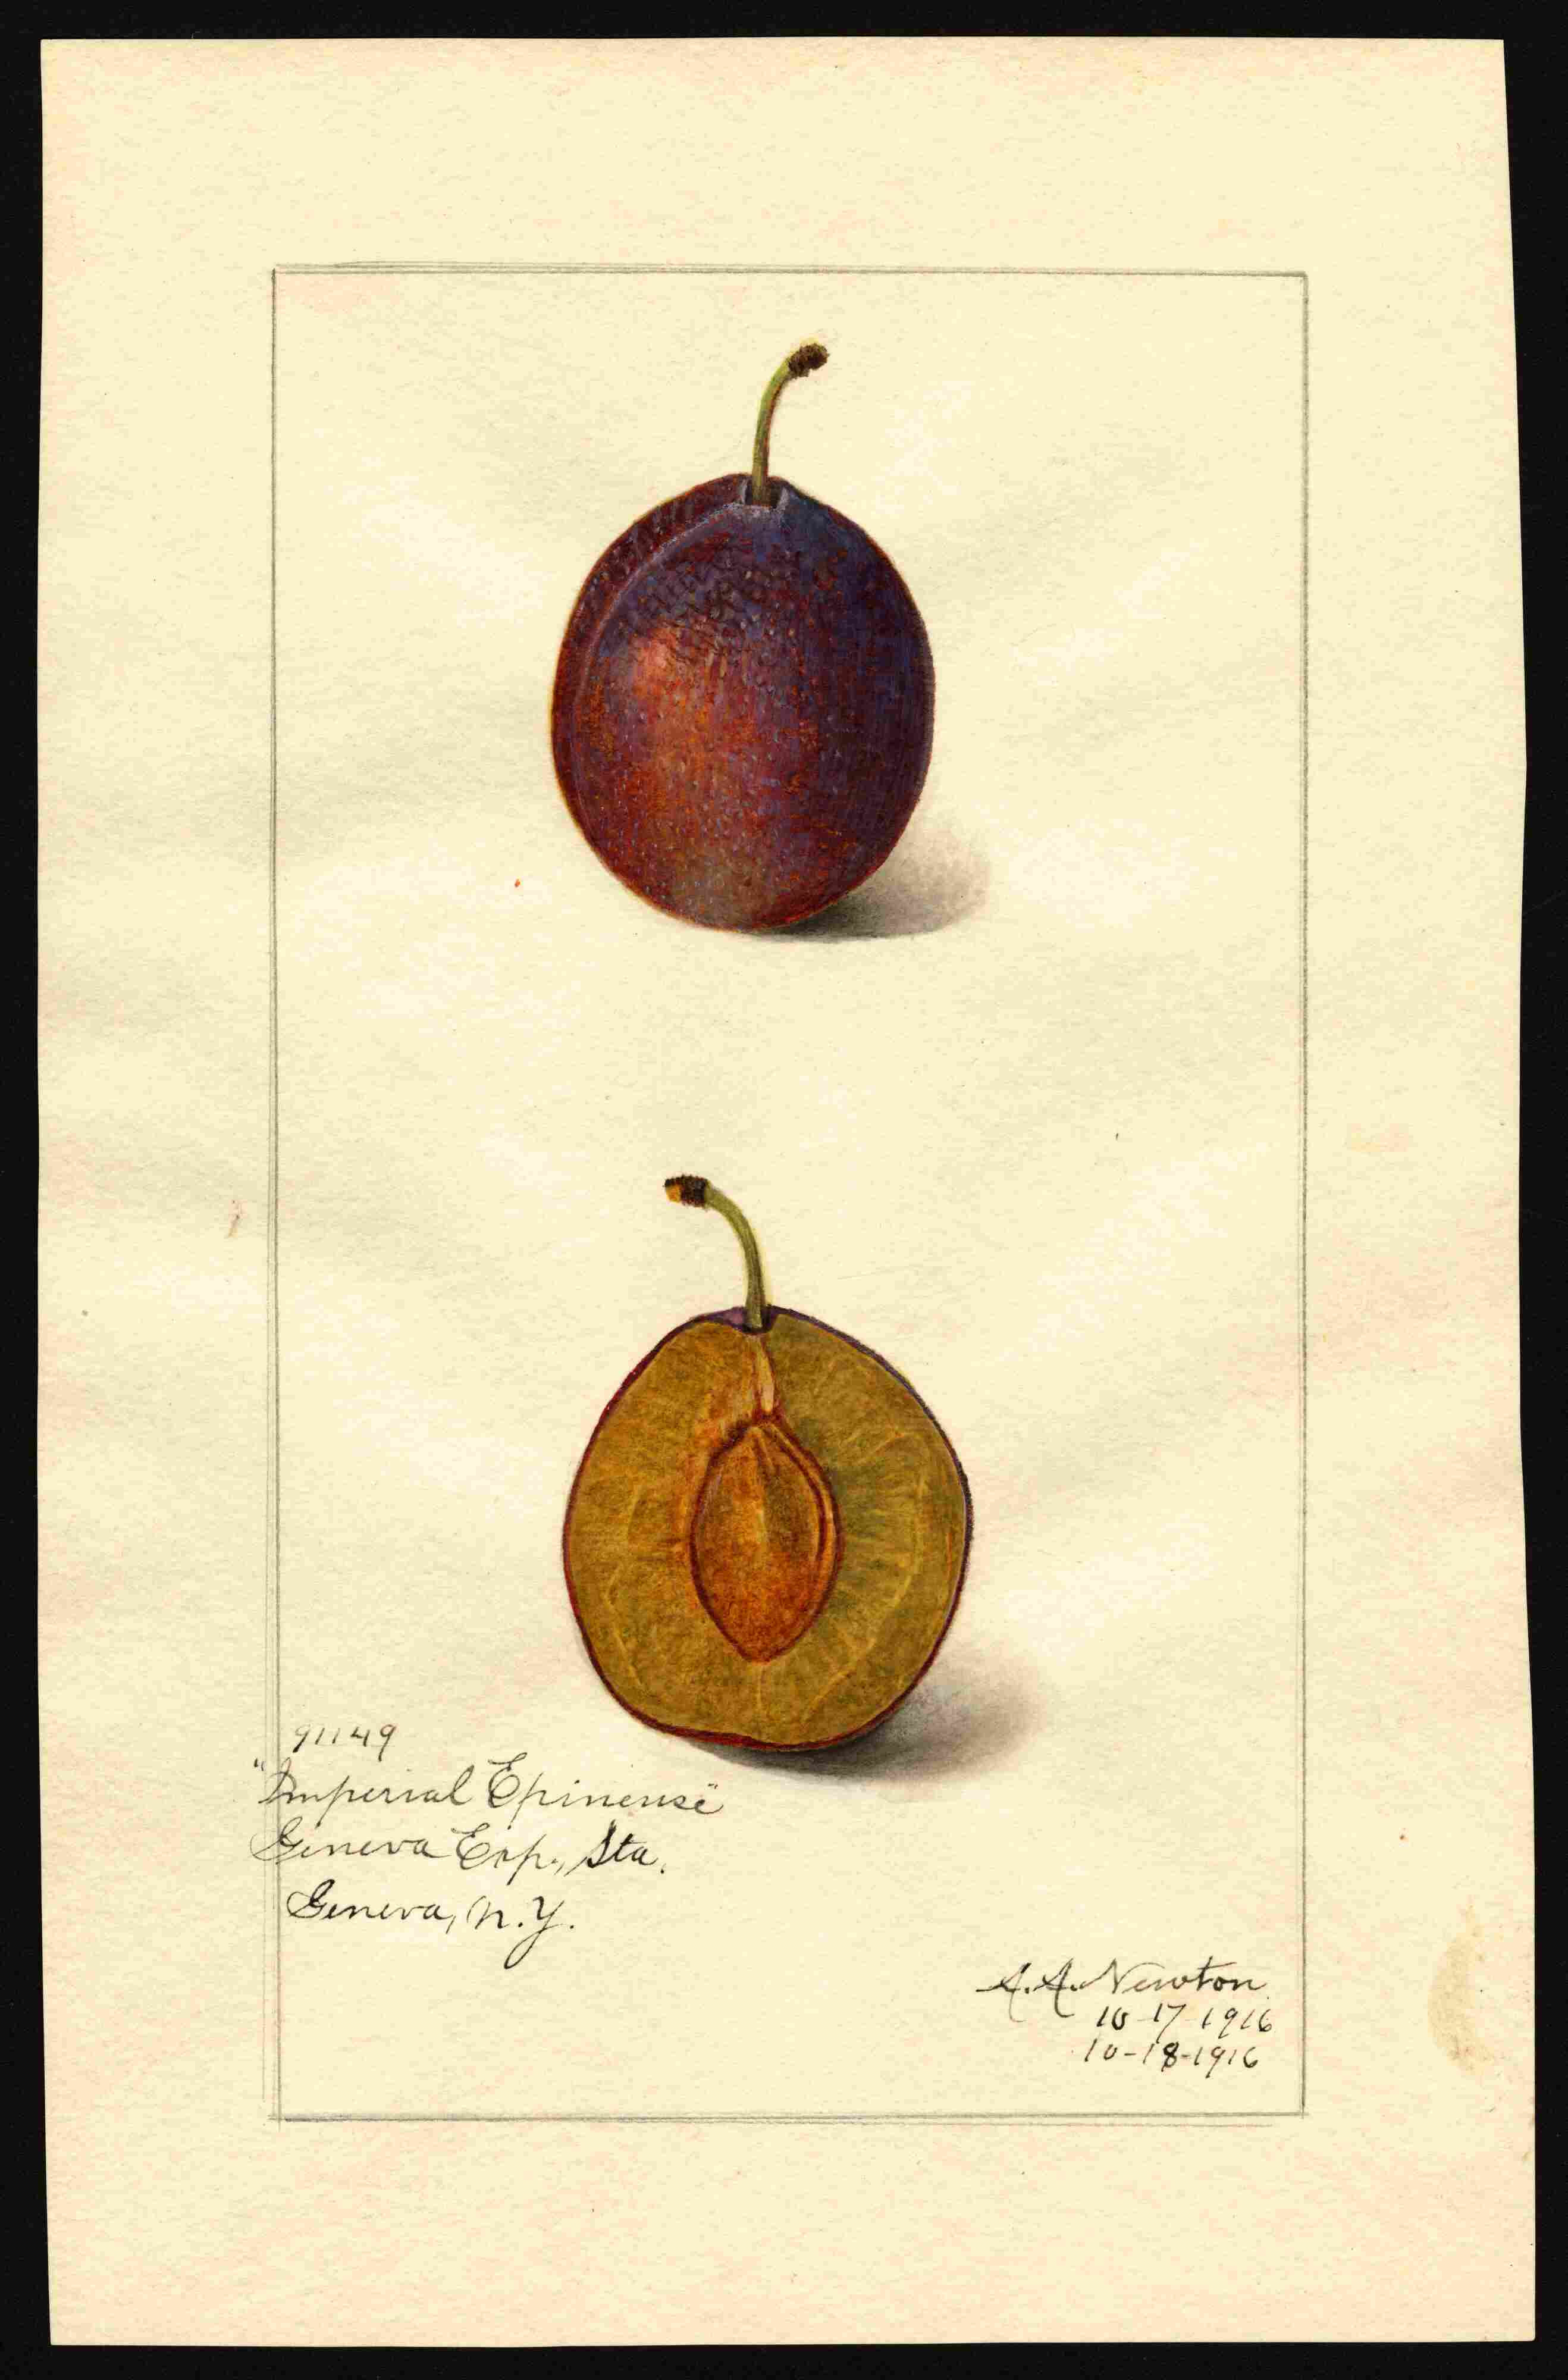 91149
"Imperial Epineuse"
Geneva Exp., Sta.
Geneva, N.Y.
A. A. Newton
10-17-1916
10-18-1916